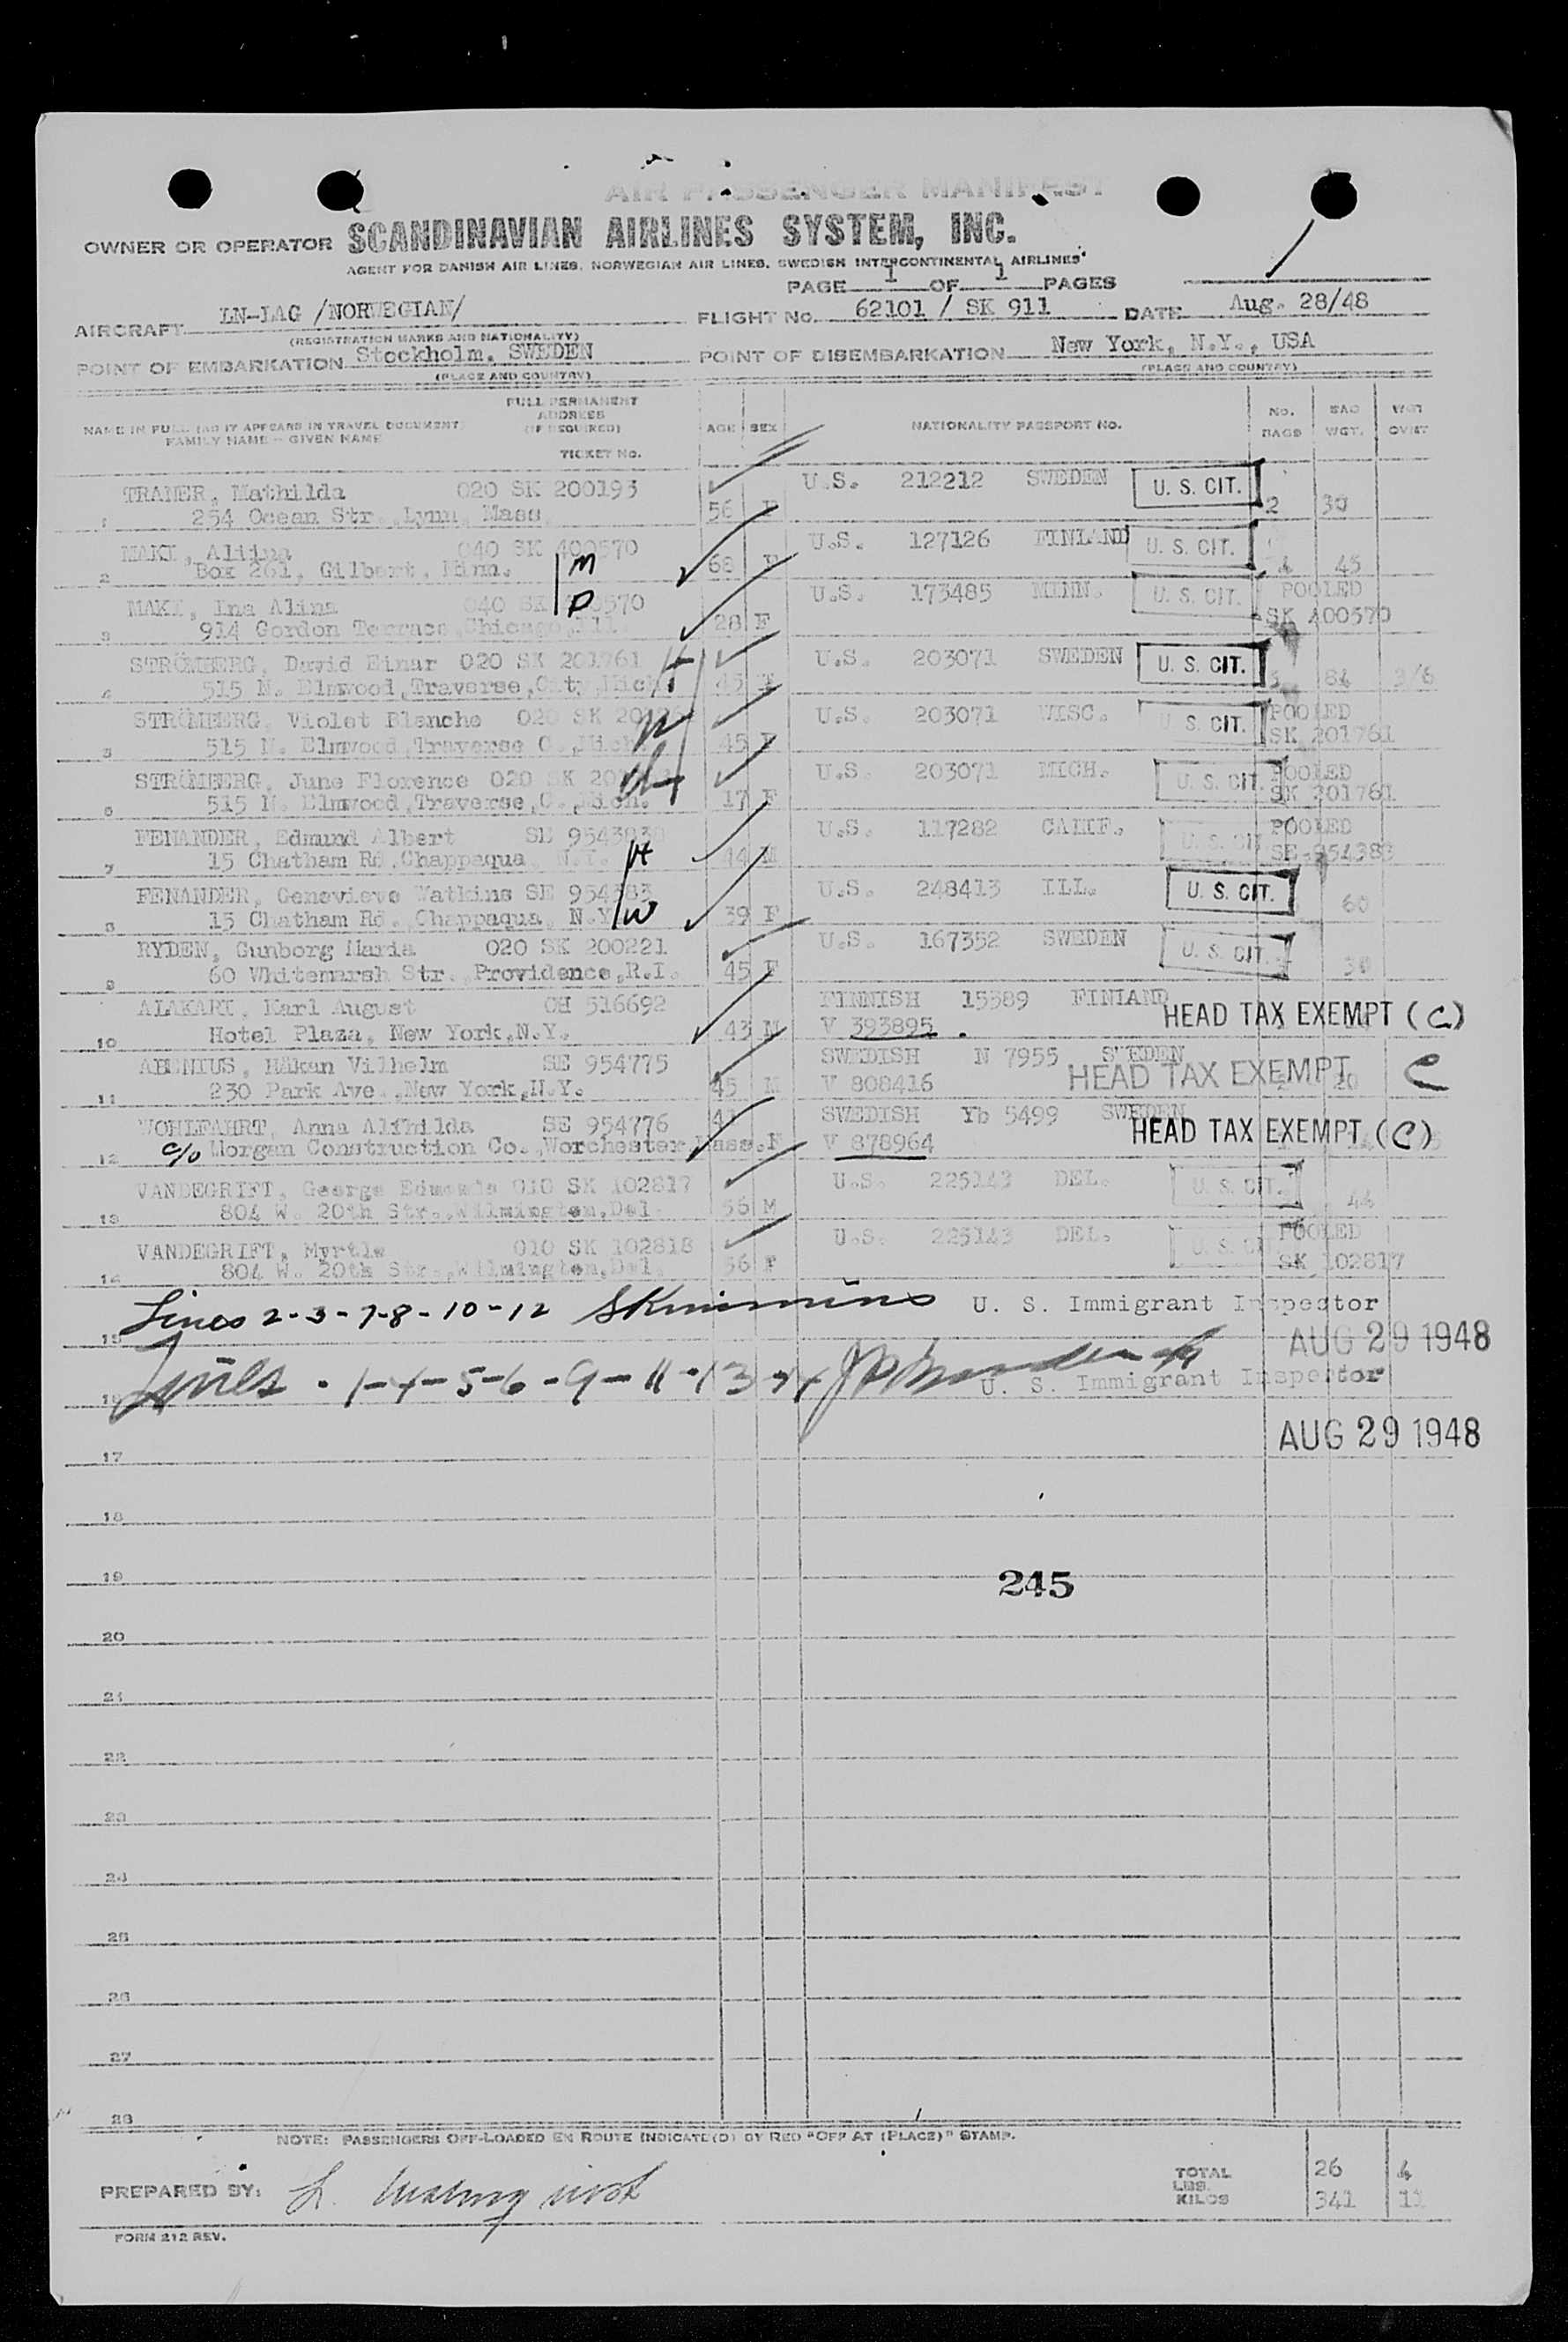 AIR PASSENGER MANIFEST
OWNER OR OPERATOR SCANDINAVIAN AIRLINES SYSTEM, INC.
AGENT FOR DANISH AIR LINES, NORWEGIAN AIR LINES, SWEDISH INTERCONTINENTAL AIRLINES
PAGE 1 OF 1 PAGES
AIRCRAFT LN-LAG /NORWEGIAN/ FLIGHT No. 62101 / SK 911 DATE Aug. 28/48
(REGISTRATION MARKS AND NATIONALITY)
POINT OF EMBARKATION Stockholm, SWEDEN POINT OF DISEMBARKATION New York, N.Y., USA
(PLACE AND COUNTRY) (PLACE AND COUNTRY)
FULL PERMANENT
ADDRESS
NAME IN FULL (AS IT APPEARS IN TRAVEL DOCUMENT) (IF REQUIRED) AGE SEX NATIONALITY PASSPORT No. No. BAGS BAG WGT. WGT
FAMILY NAME - GIVEN NAME
TICKET No.
TRANER, Mathilda 020 SK 200193 U.S. 212212 SWEDEN U. S. CIT.
1 254 Ocean Str. Lynn, Mass. 56 F 2 30
MAKI, 040 SK 400570 U.S. 127126 FINLAND U. S. CIT.
2 Box 261, Gilbert, Minn. M 68 F 45
MAKI, Ina Alina 040 SK 400570 P U.S. 173485 MINN. U. S. CIT. POOLED
3 914 Gordon Terrace, Chicago, Ill. 28 F SK 400570
STRÖMBERG, David Einar 020 SK 201761 H U.S. 203071 SWEDEN U. S. CIT.
4 515 N. Elmwood, Traverse, City, Mich. 45 84
STRÖMBERG, Violet Blanche 020 SK W U.S. 203071 WISC. U. S. CIT. POOLED
5 515 N. Elmwood, Traverse C., Mich. 45 F SK 201761
STRÖMBERG, June Florence 020 SK U.S. 203071 MICH. U. S. CIT. POOLED
6 515 N. Elmwood, Traverse, C., Mich. 17 F SK 201761
FENANDER, Edmund Albert SE U.S. 117282 CALIF. U. S. CIT POOLED
7 15 Chatham Rd. Chappaqua, N.Y. H 44 M SE 954383
FENANDER, Genevieve Watkins SE 954383 U.S. 248413 ILL. U. S. CIT.
8 15 Chatham Rd., Chappaqua, N.Y. W 39 F 60
RYDEN, Gunborg Maria 020 SK 200221 U.S. 167352 SWEDEN U. S. CIT.
9 60 Whitemarsh Str. Providence, R.I. 45 F 30
ALAKARI, Karl August OH 516692 FINNISH 15589 FINLAND HEAD TAX EXEMPT (C)
10 Hotel Plaza, New York, N.Y. 43 M V 393895
ABENIUS, Håkan Vilhelm SE 954775 SWEDISH N 7955 SWEDEN HEAD TAX EXEMPT C
11 230 Park Ave., New York, N.Y. 45 M V 808416 20
WOHLFAHRT, Anna SE 954776 41 SWEDISH Yb 5499 SWEDEN HEAD TAX EXEMPT (C)
12 c/o Morgan Construction Co., Worchester Mass. F V 878964
VANDEGRIFT, George Edmonds 010 SK 102817 U.S. 225143 DEL. U. S. CIT.
13 804 W. 20th Str., Wilmington, Del. 56 M 44
VANDEGRIFT, Myrtle 010 SK 102818 U.S. 225143 DEL. U. S. CI POOLED
14 804 W. 20th Str., Wilmington, Del. 56 F SK 102817
Lines 2-3-7-8-10-12 U. S. Immigrant Inspector
15 AUG 29 1948
Lines 1-4-5-6-9-11-13-14 U. S. Immigrant Inspector
16
AUG 29 1948
17
18
19 245
20
21
22
23
24
25
26
27
28
NOTE: PASSENGERS OFF-LOADED EN ROUTE INDICATE(D) BY RED "OFF AT (PLACE)" STAMP.
TOTAL 26 4
PREPARED BY: LBS.
KILOS 341 11
FORM 212 REV.